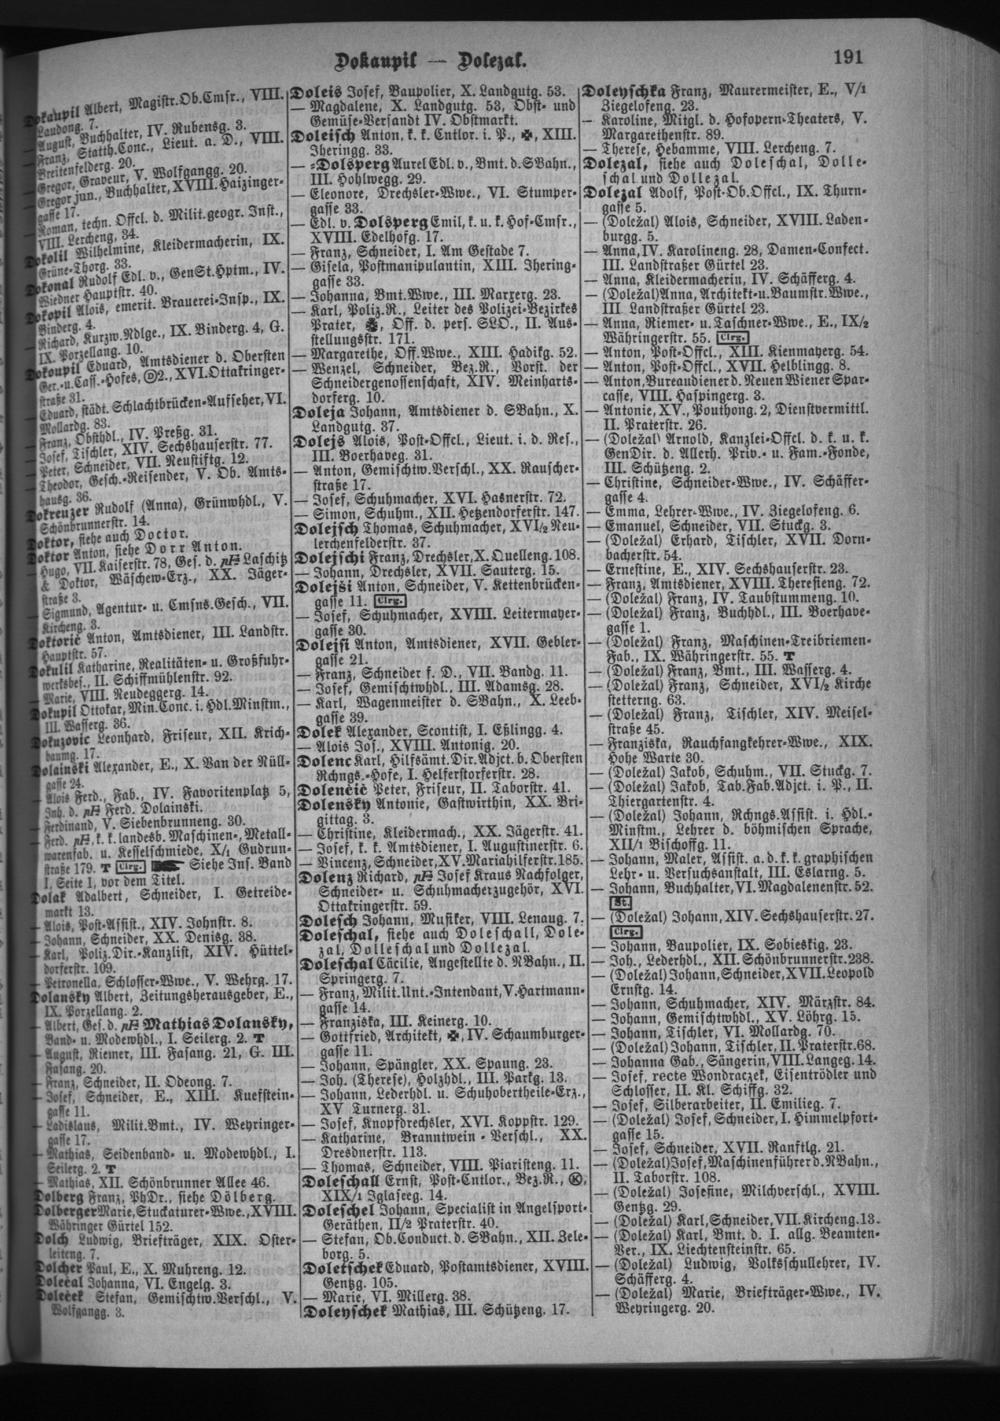 Dokaupil — Dolezal. 191
Dokaupil Albert, Magistr.Ob.Cmsr., VIII.
Laudong. 7.
— August, Buchhalter, IV. Rubensg. 3.
— Franz, Statth.Conc., Lieut. a. D., VIII.
Breitenfelderg. 20.
— Gregor, Graveur, V. Wolfgangg. 20.
— Gregor jun., Buchhalter, XVIII. Haizinger-
gasse 17.
— Roman, techn. Offcl. d. Milit.geogr. Inst.,
VIII. Lercheng. 34.
Dokolil Wilhelmine, Kleidermacherin, IX.
Grüne-Thorg. 33.
Dokonal Rudolf Edl. v., GenSt.Hptm., IV.
Wiedner Hauptstr. 40.
Dokopil Alois, emerit. Brauerei-Insp., IX.
Binderg. 4.
— Richard, Kurzw.Ndlge., IX. Binderg. 4, G.
IX. Porzellang. 10.
Dokoupil Eduard, Amtsdiener d. Obersten
Ger.-u.Cass.-Hofes, 2., XVI.Ottakringer-
straße 31.
— Eduard, städt. Schlachtbrücken-Aufseher, VI.
Mollardg. 83.
— Franz, Obsthdl., IV. Preßg. 31.
— Josef, Tischler, XIV. Sechshauserstr. 77.
— Peter, Schneider, VII. Neustiftg. 12.
— Theodor, Gesch.-Reisender, V. Ob. Amts-
hausg. 36.
Dokreuzer Rudolf (Anna), Grünwhdl., V.
Schönbrunnerstr. 14.
Doktor, siehe auch Doctor.
Doktor Anton, siehe Dorr Anton.
— Hugo, VII. Kaiserstr. 78, Ges. d. Laschitz
& Doktor, Wäschew-Erz., XX. Jäger-
straße 3.
— Sigmund, Agentur- u. Cmsns.Gesch., VII.
Kircheng. 3.
Doktoric Anton, Amtsdiener, III. Landstr.
Hauptstr. 57.
Dokulil Katharine, Realitäten- u. Großfuhr-
werksbes., II. Schiffmühlenstr. 92.
— Marie, VIII. Neudeggerg. 14.
Dokupil Ottokar, Min.Conc. i. Hdl.Minstm.,
III. Wasserg. 36.
Dokuzovic Leonhard, Friseur, XII. Krich-
baumg. 17.
Dolainski Alexander, E., X. Van der Nüll-
gasse 24.
— Alois Ferd., Fab., IV. Favoritenplatz 5,
Inh. d. Ferd. Dolainski.
— Ferdinand, V. Siebenbrunneng. 30.
— Ferd. k. k. landesb. Maschinen-, Metall-
warenfab. u. Kesselschmiede, X/1 Gudrun-
straße 179. T Clrg. Siehe Ins. Band
I, Seite 1, vor dem Titel.
Dolak Adalbert, Schneider, I. Getreide-
markt 13.
— Alois, Post-Assist., XIV. Johnstr. 8.
— Johann, Schneider, XX. Denisg. 38.
— Karl, Poliz.Dir.-Kanzlist, XIV. Hüttel-
dorferstr. 109.
— Petronella, Schlosser-Wwe., V. Wehrg. 17.
Dolansky Albert, Zeitungsherausgeber, E.,
IX. Porzellang. 2.
— Albert, Ges. d. Mathias Dolansky,
Band- u. Modewhdl., I. Seilerg. 2. T
— August, Riemer, III. Fasang. 21, G. III.
Fasang. 20.
— Franz, Schneider, II. Odeong. 7.
— Josef, Schneider, E., XIII. Kuefstein-
gasse 11.
— Ladislaus, Milit.Bmt., IV. Weyringer-
gasse 17.
— Mathias, Seidenband- u. Modewhdl., I.
Seilerg. 2. T
— Mathias, XII. Schönbrunner Allee 46.
Dolberg Franz, PhDr., siehe Dölberg.
Dolberger Marie, Stuckaturer-Wwe., XVIII.
Währinger Gürtel 152.
Dolch Ludwig, Briefträger, XIX. Oster-
leiteng. 7.
Dolcher Paul, E., X. Muhreng. 12.
Dolecal Johanna, VI. Engelg. 3.
Doleček Stefan, Gemischtw.Verschl., V.
Wolfgangg. 3.
Doleis Josef, Baupolier, X. Landgutg. 53.
— Magdalene, X. Landgutg. 53, Obst- und
Gemüse-Versandt IV. Obstmarkt.
Doleisch Anton, k. k. Cntlor. i. P., ✠, XIII.
Iheringg. 33.
— -Dolsperg Aurel Edl. v., Bmt. d. SBahn.,
III. Hohlwegg. 29.
— Eleonore, Drechsler-Wwe., VI. Stumper-
gasse 33.
— Edl. v. Dolsperg Emil, k. u. k. Hof-Cmsr.,
XVIII. Edelhofg. 17.
— Franz, Schneider, I. Am Gestade 7.
— Gisela, Postmanipulantin, XIII. Ihering-
gasse 33.
— Johanna, Bmt.Wwe., III. Marxerg. 23.
— Karl, Poliz.R., Leiter des Polizei-Bezirkes
Prater, Off. d. pers. SLO., II. Aus-
stellungsstr. 171.
— Margarethe, Off.Wwe., XIII. Hadikg. 52.
— Wenzel, Schneider, Bez.R., Vorst. der
Schneidergenossenschaft, XIV. Meinharts-
dorferg. 10.
Doleja Johann, Amtsdiener d. SBahn., X.
Landgutg. 37.
Dolejs Alois, Post-Offcl., Lieut. i. d. Res.,
III. Boerhaveg. 31.
— Anton, Gemischtw.Verschl., XX. Rauscher-
straße 17.
— Josef, Schuhmacher, XVI. Hasnerstr. 72.
— Simon, Schuhm., XII. Hetzendorferstr. 147.
Dolejsch Thomas, Schuhmacher, XVI/2 Neu-
lerchenfelderstr. 37.
Dolejschi Franz, Drechsler, X. Quelleng. 108.
— Johann, Drechsler, XVII. Sauterg. 15.
Dolejši Anton, Schneider, V. Kettenbrücken-
gasse 11. Clrg.
— Josef, Schuhmacher, XVIII. Leitermayer-
gasse 30.
Dolejsi Anton, Amtsdiener, XVII. Gebler-
gasse 21.
— Franz, Schneider f. D., VII. Bandg. 11.
— Josef, Gemischtwhdl., III. Adamsg. 28.
— Karl, Wagenmeister d. SBahn., X. Leeb-
gasse 39.
Dolek Alexander, Scontist, I. Eßlingg. 4.
— Alois Jos., XVIII. Antonig. 20.
Dolenc Karl, Hilfsämt.Dir.Adjct. b. Obersten
Rchngs.-Hofe, I. Helferstorferstr. 28.
Dolenčič Peter, Friseur, II. Taborstr. 41.
Dolensky Antonie, Gastwirthin, XX. Bri-
gittag. 3.
— Christine, Kleidermach., XX. Jägerstr. 41.
— Josef, k. k. Amtsdiener, I. Augustinerstr. 6.
— Vincenz, Schneider, XV. Mariahilferstr. 185.
Dolenz Richard, Josef Kraus Nachfolger,
Schneider- u. Schuhmacherzugehör, XVI.
Ottakringerstr. 59.
Dolesch Johann, Musiker, VIII. Lenaug. 7.
Doleschal, siehe auch Doleschall, Dole-
zal, Dolleschal und Dollezal.
Doleschal Cäcilie, Angestellte d. NBahn., II.
Springerg. 7.
— Franz, Milit.Unt.-Intendant, V. Hartmann-
gasse 14.
— Franziska, III. Keinerg. 10.
— Gottfried, Architekt, ✠, IV. Schaumburger-
gasse 11.
— Johann, Spängler, XX. Spaung. 23.
— Joh. (Therese), Holzhdl., III. Parkg. 13.
— Johann, Lederhdl. u. Schuhobertheile-Erz.,
XV Turnerg. 31.
— Josef, Knopfdrechsler, XVI. Koppstr. 129.
— Katharine, Branntwein-Verschl., XX.
Dresdnerstr. 113.
— Thomas, Schneider, VIII. Piaristeng. 11.
Doleschall Ernst, Post-Cntlor., Bez.R.,
XIX/1 Iglaseeg. 14.
Doleschel Johann, Specialist in Angelsport-
Geräthen, II/2 Praterstr. 40.
— Stefan, Ob.Conduct. d. SBahn., XII. Zele-
borg. 5.
Doletschek Eduard, Postamtsdiener, XVIII.
Gentzg. 105.
— Marie, VI. Millerg. 38.
Doleyschek Mathias, III. Schützeng. 17.
Doleyschka Franz, Maurermeister, E., V/1
Ziegelofeng. 23.
— Karoline, Mitgl. d. Hofopern-Theaters, V.
Margarethenstr. 89.
— Therese, Hebamme, VIII. Lercheng. 7.
Dolezal, siehe auch Doleschal, Dolle-
schal und Dollezal.
Dolezal Adolf, Post-Ob.Offcl., IX. Thurn-
gasse 5.
— (Doležal) Alois, Schneider, XVIII. Laden-
burgg. 5.
— Anna, IV. Karolineng. 28, Damen-Confect.
III. Landstraßer Gürtel 23.
— Anna, Kleidermacherin, IV. Schäfferg. 4.
— (Doležal) Anna, Architekt-u.Baumstr.Wwe.,
III Landstraßer Gürtel 23.
— Anna, Riemer- u. Taschner-Wwe., E., IX/2
Währingerstr. 55. Clrg.
— Anton, Post-Offcl., XIII. Kienmayerg. 54.
— Anton, Post-Offcl., XVII. Helblingg. 8.
— Anton, Bureaudiener d. Neuen Wiener Spar-
casse, VIII. Haspingerg. 3.
— Antonie, XV., Pouthong. 2, Dienstvermittl.
II. Praterstr. 26.
— (Doležal) Arnold, Kanzlei-Offcl. d. k. u. k.
GenDir. d. Allerh. Priv.- u. Fam.-Fonde,
III. Schützeng. 2.
— Christine, Schneider-Wwe., IV. Schäffer-
gasse 4.
— Emma, Lehrer-Wwe., IV. Ziegelofeng. 6.
— Emanuel, Schneider, VII. Stuckg. 3.
— (Doležal) Erhard, Tischler, XVII. Dorn-
bacherstr. 54.
— Ernestine, E., XIV. Sechshauserstr. 23.
— Franz, Amtsdiener, XVIII. Theresieng. 72.
— (Doležal) Franz, IV. Taubstummeng. 10.
— (Doležal) Franz, Buchhdl., III. Boerhave-
gasse 1.
— (Doležal) Franz, Maschinen-Treibriemen-
Fab., IX. Währingerstr. 55. T
— (Doležal) Franz, Bmt., III. Wasserg. 4.
— (Doležal) Franz, Schneider, XVI/2 Kirch-
stetterng. 63.
— (Doležal) Franz, Tischler, XIV. Meisel-
straße 45.
— Franziska, Rauchfangkehrer-Wwe., XIX.
Hohe Warte 30.
— (Doležal) Jakob, Schuhm., VII. Stuckg. 7.
— (Doležal) Jakob, Tab.Fab.Adjct. i. P., II.
Thiergartenstr. 4.
— (Doležal) Johann, Rchngs.Assist. i. Hdl.-
Minstm., Lehrer d. böhmischen Sprache,
XII/1 Bischoffg. 11.
— Johann, Maler, Assist. a. d. k. k. graphischen
Lehr- u. Versuchsanstalt, III. Eslarng. 5.
— Johann, Buchhalter, VI. Magdalenenstr. 52.
St.
— (Doležal) Johann, XIV. Sechshauserstr. 27.
Clrg.
— Johann, Baupolier, IX. Sobieskig. 23.
— Joh., Lederhdl., XII. Schönbrunnerstr. 238.
— (Doležal) Johann, Schneider, XVII. Leopold
Ernstg. 14.
— Johann, Schuhmacher, XIV. Märzstr. 84.
— Johann, Gemischtwhdl., XV. Löhrg. 15.
— Johann, Tischler, VI. Mollardg. 70.
— (Doležal) Johann, Tischler, II. Praterstr. 68.
— Johanna Gab., Sängerin, VIII. Langeg. 14.
— Josef, recte Wondraczek, Eisentrödler und
Schlosser, II. Kl. Schiffg. 32.
— Josef, Silberarbeiter, II. Emilieg. 7.
— (Doležal) Josef, Schneider, I. Himmelpfort-
gasse 15.
— Josef, Schneider, XVII. Ranftlg. 21.
— (Doležal) Josef, Maschinenführer d. NBahn.,
II. Taborstr. 108.
— (Doležal) Josefine, Milchverschl., XVIII.
Gentzg. 29.
— (Doležal) Karl, Schneider, VII. Kircheng. 13.
— (Doležal) Karl, Bmt. d. I. allg. Beamten-
Ver., IX. Liechtensteinstr. 65.
— (Doležal) Ludwig, Volksschullehrer, IV.
Schäfferg. 4.
— (Doležal) Marie, Briefträger-Wwe., IV.
Weyringerg. 20.